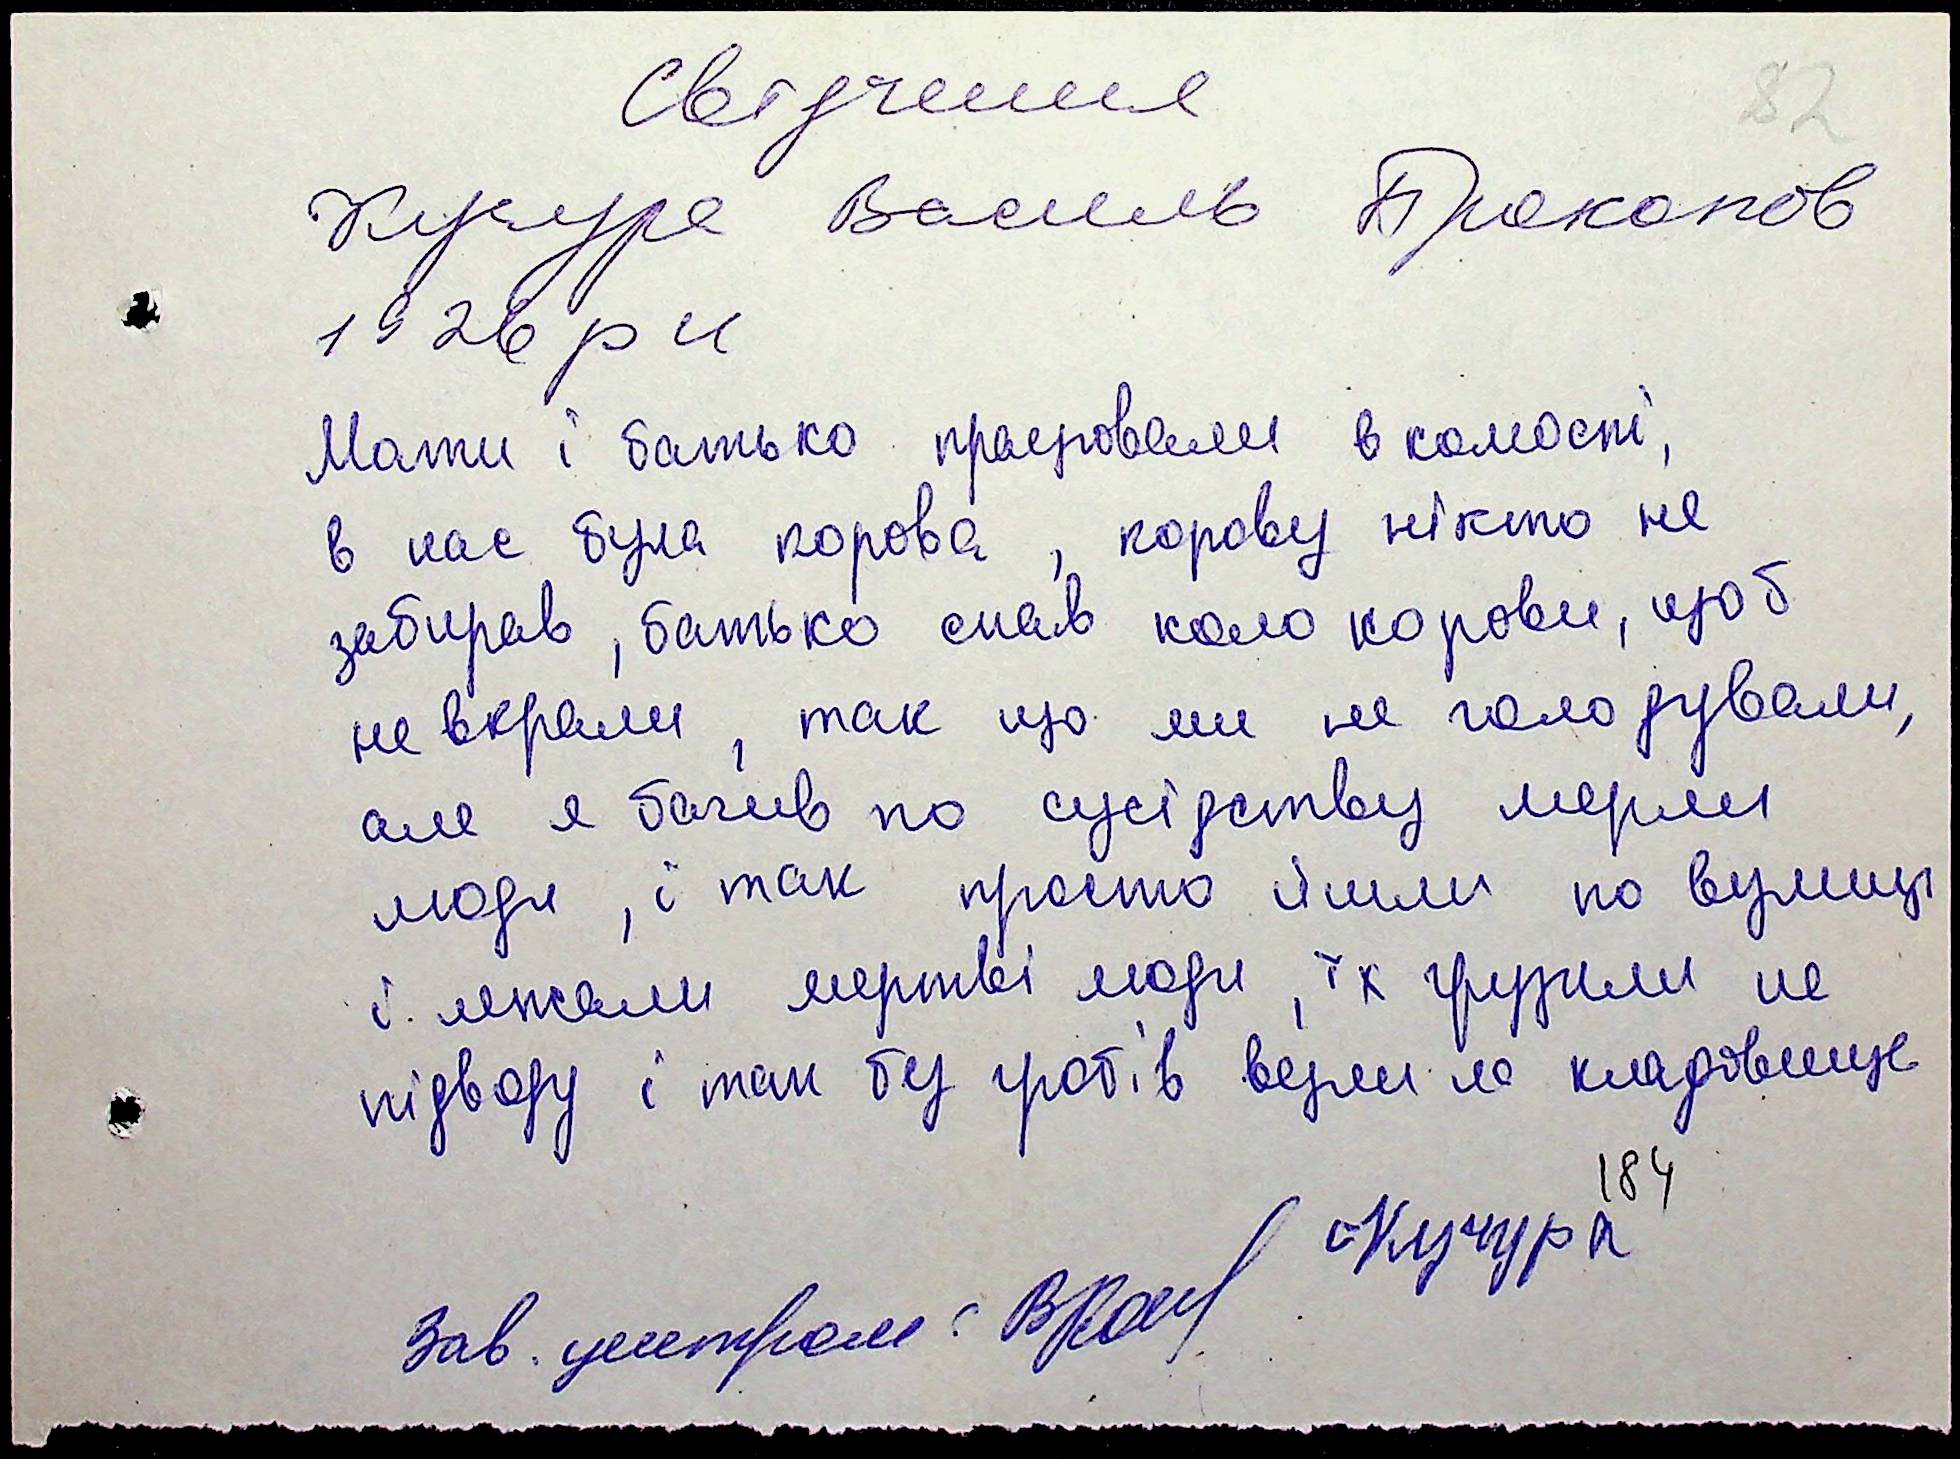 Свідчення
82
Кучура Василь Прокопов
1926 р н
Мати і батько працювали в колгоспі,
в нас була корова, корову нікто не
забирав, батько спав коло корови, щоб
не вкрали, так що ми не голодували,
але я бачив по сусідству мерли
люди, і так просто йшли по вулиці
і лежали мертві люди, їх грузили на
підводу і так без гробів везли на кладовище
184
Кучура
Зав. центром: